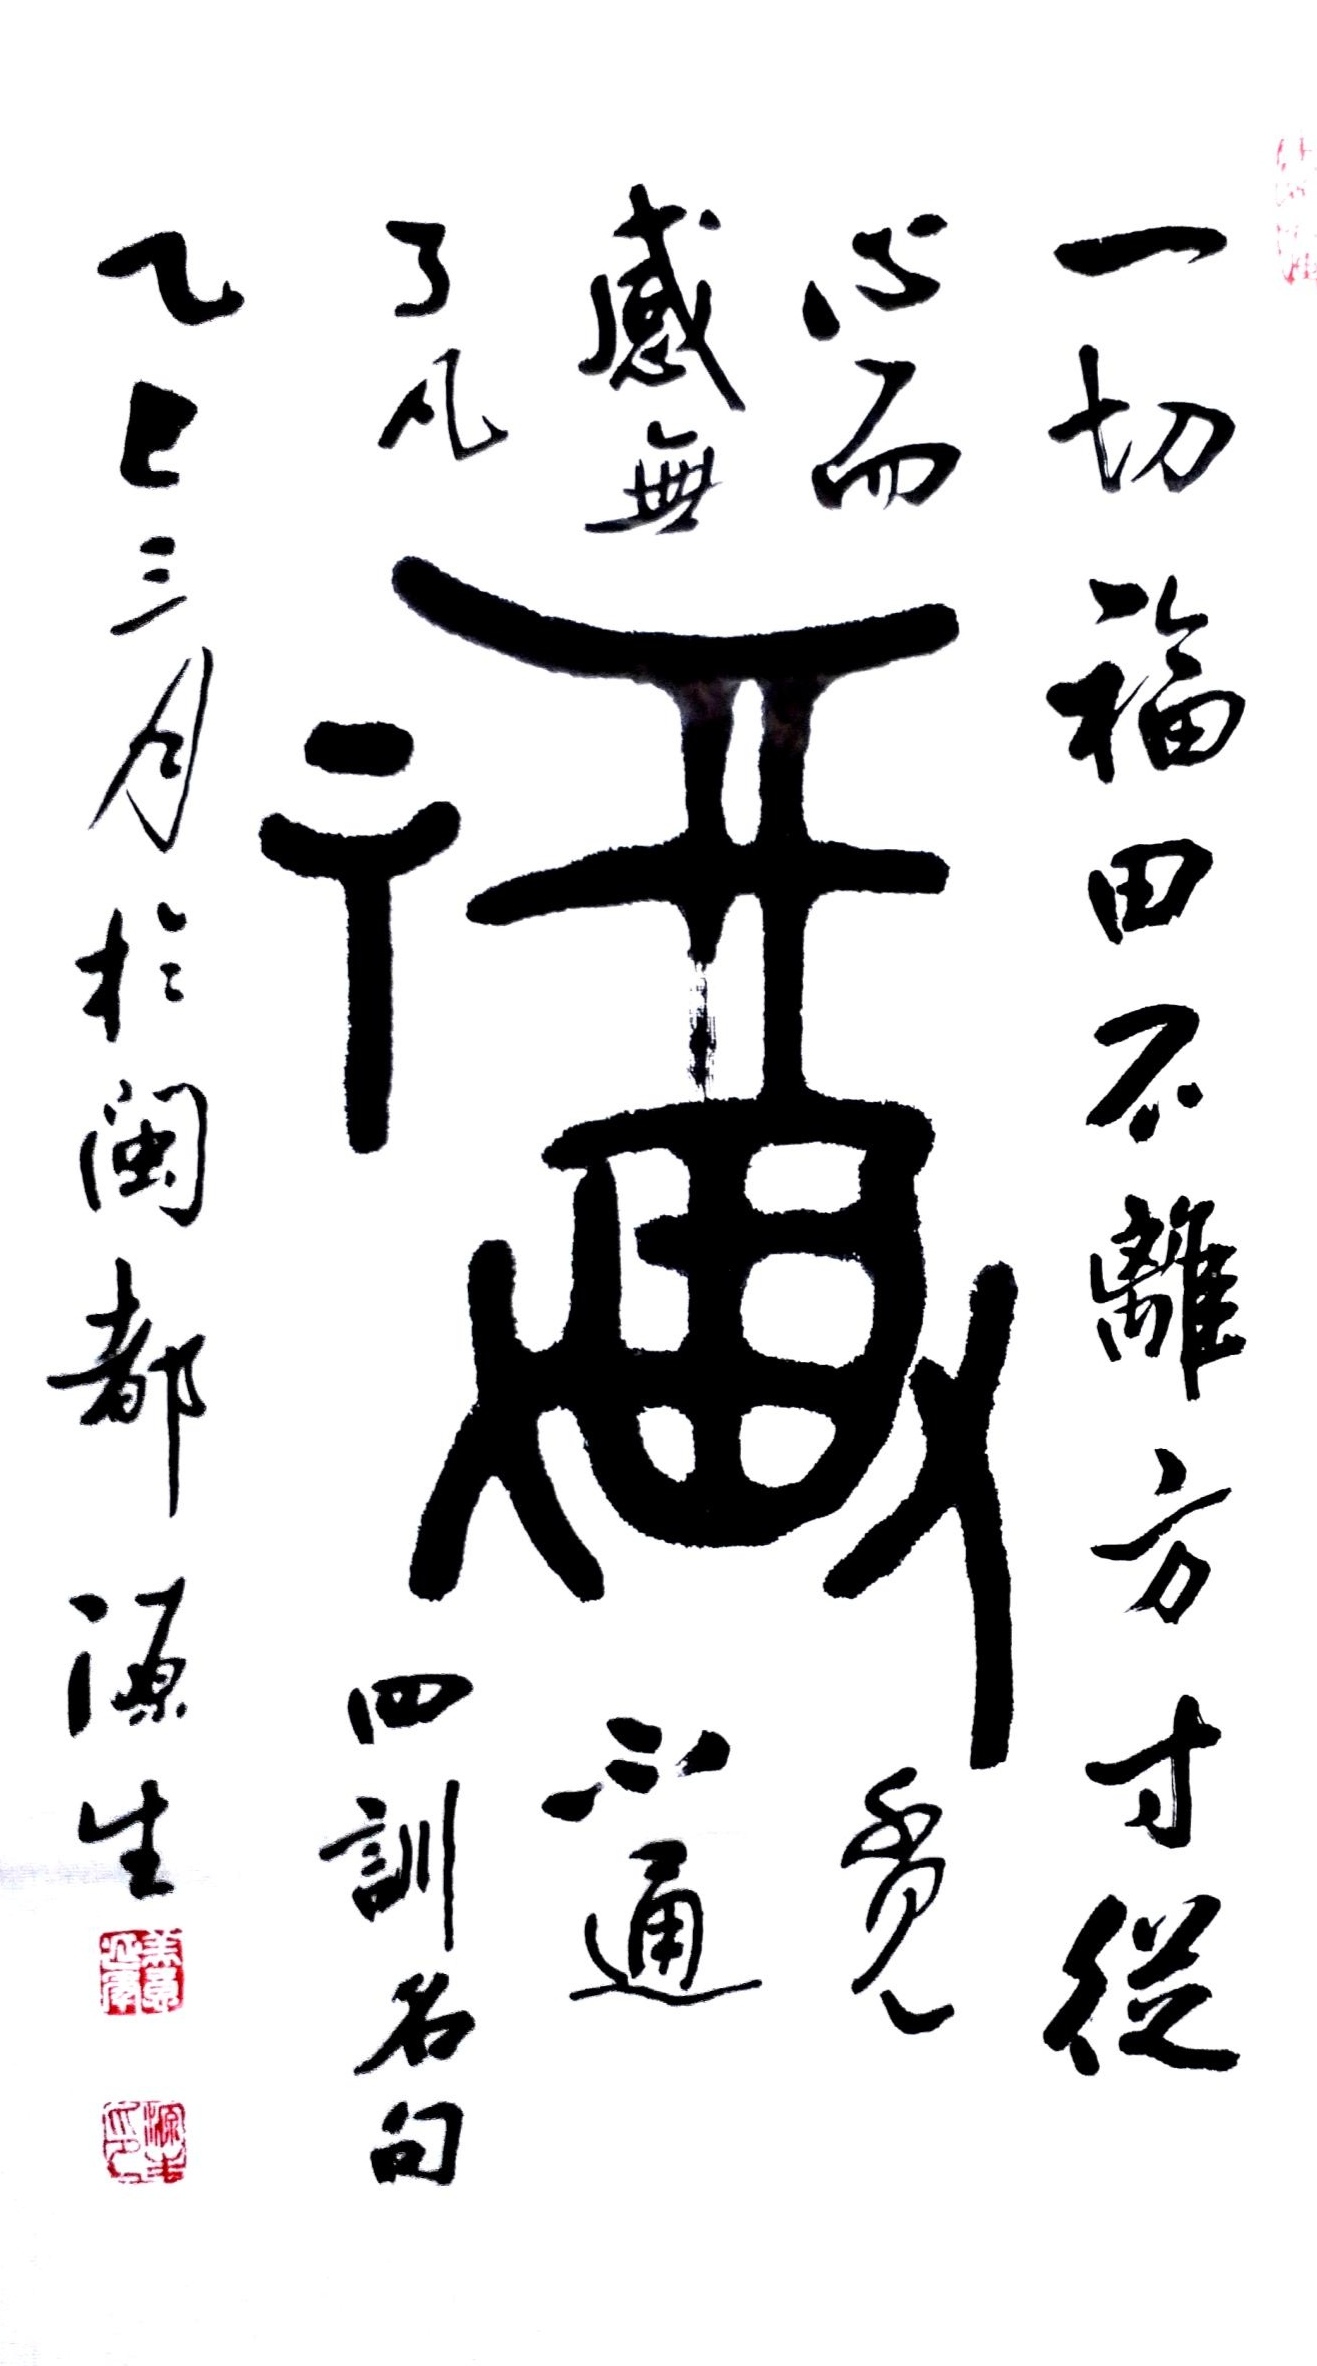 一切福田不離方寸從
心而覓
感無不通
福
了凡四訓名句
乙巳三月於闽都源生